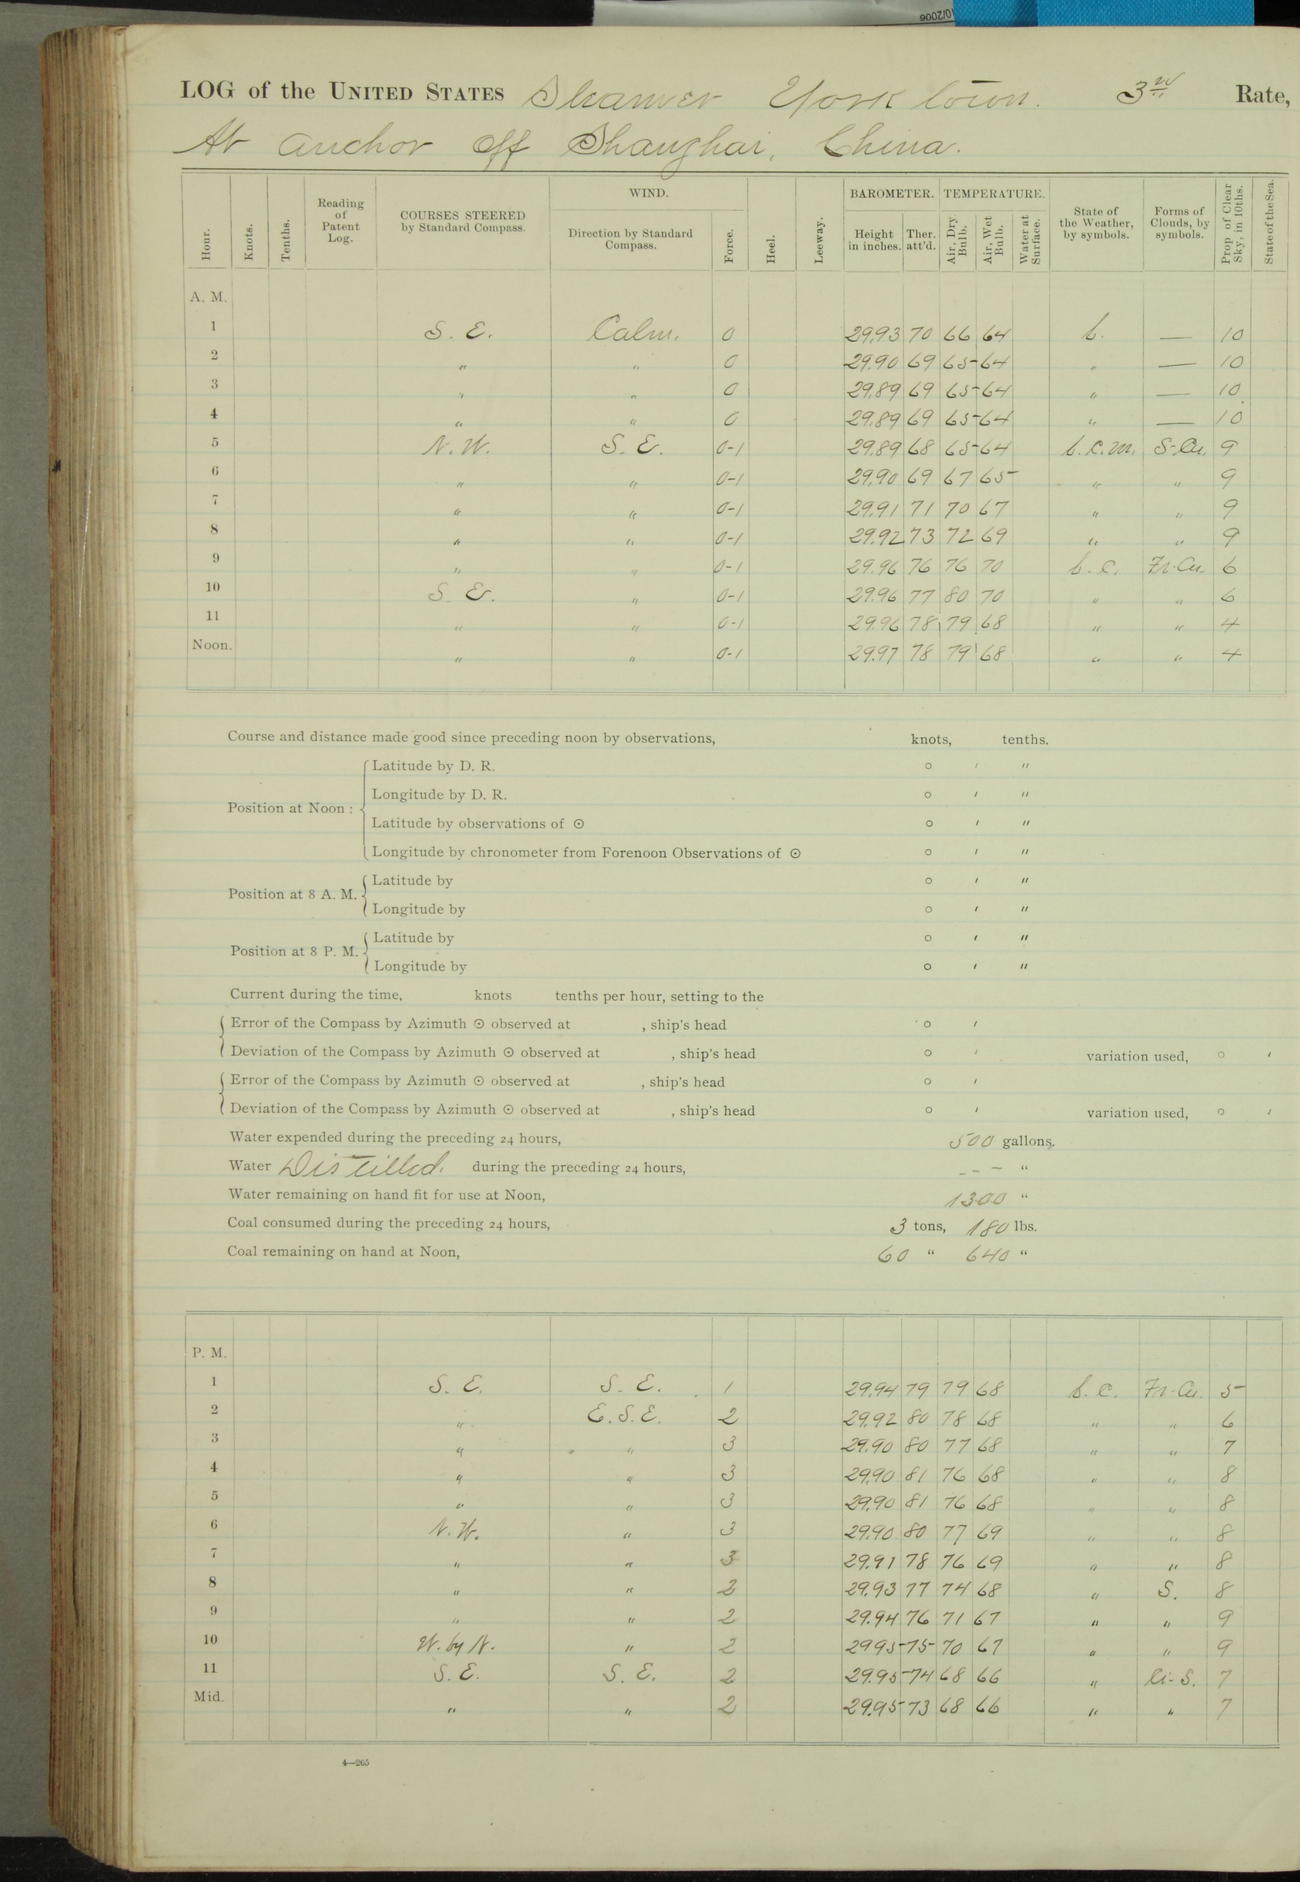 0/2006
LOG of the UNITED STATES Steamer Yorktown. 3rd Rate,
At anchor off Shanghai, China.
Hour. Knots. Tenths. Reading of Patent Log. COURSES STEERED by Standard Compass. WIND. Direction by Standard Compass. Force. Heel. Leeway. BAROMETER. Height in inches. Ther. att'd. TEMPERATURE. Air, Dry Bulb. Air, Wet Bulb. Water at Surface. State of the Weather, by symbols. Forms of Clouds, by symbols. Prop. of Clear Sky, in 10ths. State of the Sea.
A. M.
1 S. E. Calm. 0 29.93 70 66 64 b. — 10
2 " " 0 29.90 69 65 64 " — 10
3 " " 0 29.89 69 65 64 " — 10
4 " " 0 29.89 69 65 64 " — 10
5 N. W. S. E. 0-1 29.89 68 65 64 b. c. m. S-Cu. 9
6 " " 0-1 29.90 69 67 65 " " 9
7 " " 0-1 29.91 71 70 67 " " 9
8 " " 0-1 29.92 73 72 69 " " 9
9 " " 0-1 29.96 76 76 70 b. c. Fr-Cu. 6
10 S. E. " 0-1 29.96 77 80 70 " " 6
11 " " 0-1 29.96 78 79 68 " " 4
Noon. " " 0-1 29.97 78 79 68 " " 4
Course and distance made good since preceding noon by observations, knots, tenths.
Position at Noon : Latitude by D. R. ° ' "
Longitude by D. R. ° ' "
Latitude by observations of ☉ ° ' "
Longitude by chronometer from Forenoon Observations of ☉ ° ' "
Position at 8 A. M. Latitude by ° ' "
Longitude by ° ' "
Position at 8 P. M. Latitude by ° ' "
Longitude by ° ' "
Current during the time, knots tenths per hour, setting to the
Error of the Compass by Azimuth ☉ observed at , ship's head ° '
Deviation of the Compass by Azimuth ☉ observed at , ship's head ° ' variation used, ° '
Error of the Compass by Azimuth ☉ observed at , ship's head ° '
Deviation of the Compass by Azimuth ☉ observed at , ship's head ° ' variation used, ° '
Water expended during the preceding 24 hours, 500 gallons.
Water Distilled. during the preceding 24 hours, - - - "
Water remaining on hand fit for use at Noon, 1300 "
Coal consumed during the preceding 24 hours, 3 tons, 180 lbs.
Coal remaining on hand at Noon, 60 " 640 "
P. M.
1 S. E. S. E. 1 29.94 79 79 68 b. c. Fr-Cu. 5
2 " E. S. E. 2 29.92 80 78 68 " " 6
3 " " 3 29.90 80 77 68 " " 7
4 " " 3 29.90 81 76 68 " " 8
5 " " 3 29.90 81 76 68 " " 8
6 N. W. " 3 29.90 80 77 69 " " 8
7 " " 3 29.91 78 76 69 " " 8
8 " " 2 29.93 77 74 68 " S. 8
9 " " 2 29.94 76 71 67 " " 9
10 W. by N. " 2 29.95 75 70 67 " " 9
11 S. E. S. E. 2 29.95 74 68 66 " Ci-S. 7
Mid. " " 2 29.95 73 68 66 " " 7
4—265